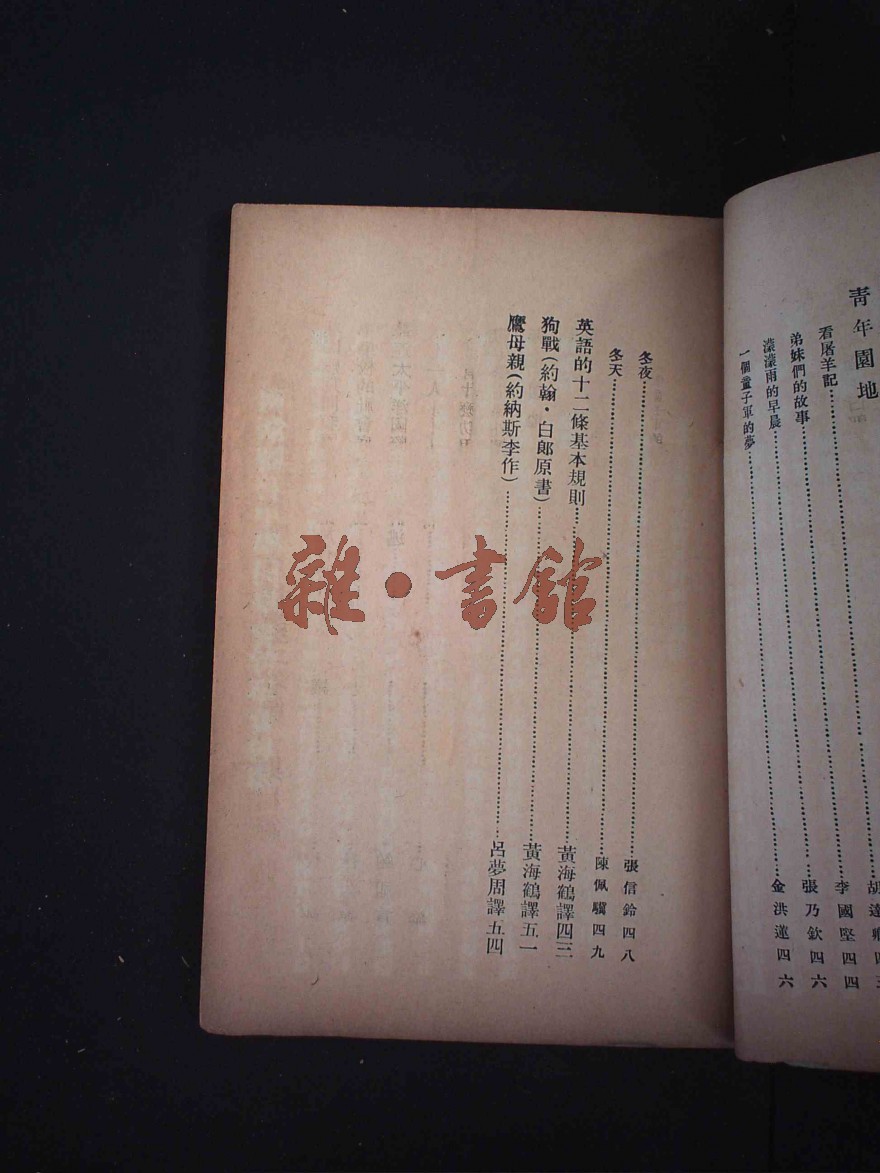 青年園地
看屠羊記……李國堅四四
弟妹們的故事……張乃欽四六
濛濛雨的早晨……金洪蓮四六
一個童子軍的夢
冬夜……張信鈴四八
冬天……陳佩驥四九
英語的十二條基本規則……黃海鶴譯四三
狗戰(約翰·白郎原書)……黃海鶴譯五一
鷹母親(約納斯李作)……呂夢周譯五四
雜·書館